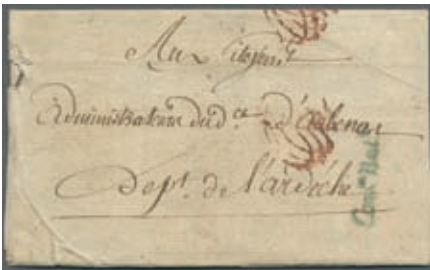 Aux Citoyens
Administrateurs du d.ce d'aubenas
Dep.t de L'ardéche